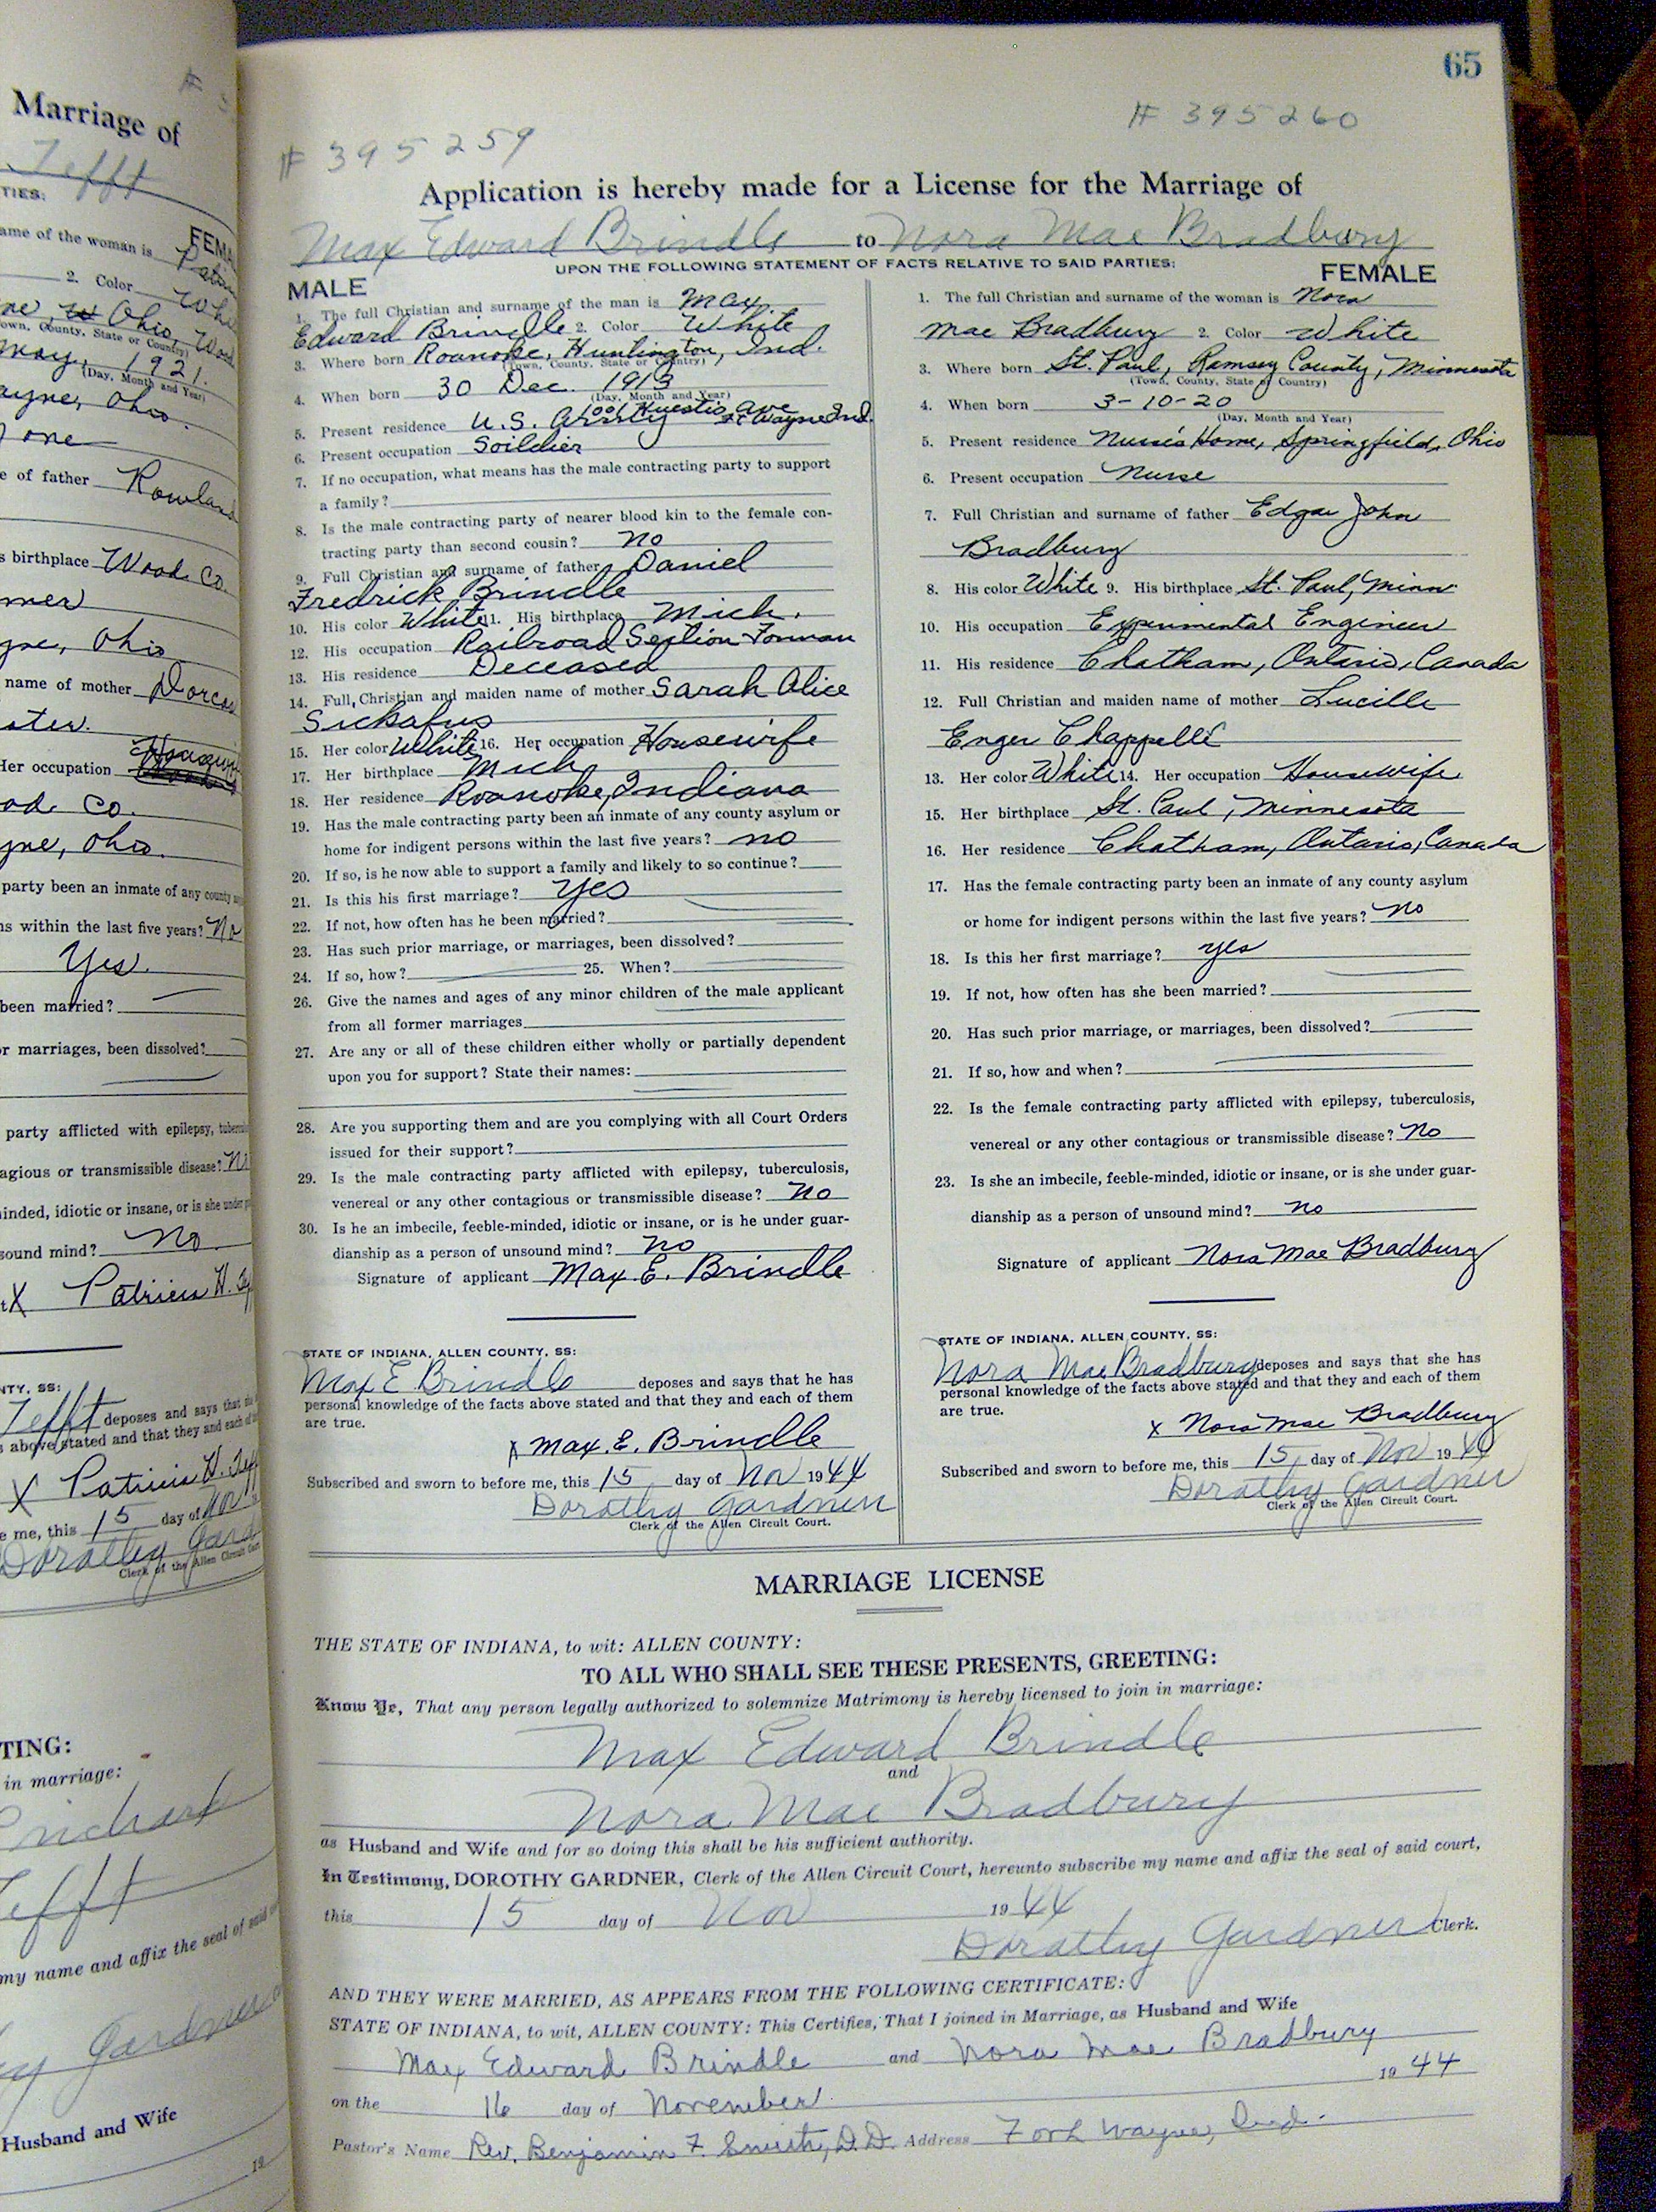 Marriage of
Tefft
TIES:
FEMA
ame of the woman is
2. Color
own, County, State or Country)
May, 1921.
(Day, Month and Year)
ayne, Ohio.
one
e of father Rowland
s birthplace Wood Co.
mer
yne, Ohio
name of mother Dorcas
Her occupation
od Co.
yne, Ohio.
party been an inmate of any county
ns within the last five years? No
Yes.
been married?
or marriages, been dissolved?
party afflicted with epilepsy, tubercu
agious or transmissible disease? No
inded, idiotic or insane, or is she under
sound mind? No
X Patricia H. Tef
NTY, SS:
Tefft deposes and says that
s above stated and that they and each of
X Patricia H. Tef
e me, this 15 day of Nov
Dorothy Gard
Clerk of the Allen Circuit Court
TING:
in marriage:
Tefft
my name and affix the seal of said
y Gardner
Husband and Wife
19
65
# 395259
# 395260
Application is hereby made for a License for the Marriage of
Max Edward Brindle to Nora Mae Bradbury
UPON THE FOLLOWING STATEMENT OF FACTS RELATIVE TO SAID PARTIES:
MALE
1. The full Christian and surname of the man is Max
Edward Brindle 2. Color White
3. Where born Roanoke, Huntington, Ind.
(Town, County, State or Country)
4. When born 30 Dec. 1913
(Day, Month and Year)
5. Present residence U.S. Army 1001 Huestis Ave Ft Wayne Ind.
6. Present occupation Soildier
7. If no occupation, what means has the male contracting party to support
a family?
8. Is the male contracting party of nearer blood kin to the female con-
tracting party than second cousin? No
9. Full Christian and surname of father Daniel
Fredrick Brindle
10. His color White 11. His birthplace Mich.
12. His occupation Railroad Section Forman
13. His residence Deceased
14. Full Christian and maiden name of mother Sarah Alice
Sickafus
15. Her color White 16. Her occupation Housewife
17. Her birthplace Mich
18. Her residence Roanoke, Indiana
19. Has the male contracting party been an inmate of any county asylum or
home for indigent persons within the last five years? no
20. If so, is he now able to support a family and likely to so continue?
21. Is this his first marriage? Yes
22. If not, how often has he been married?
23. Has such prior marriage, or marriages, been dissolved?
24. If so, how? 25. When?
26. Give the names and ages of any minor children of the male applicant
from all former marriages
27. Are any or all of these children either wholly or partially dependent
upon you for support? State their names:
28. Are you supporting them and are you complying with all Court Orders
issued for their support?
29. Is the male contracting party afflicted with epilepsy, tuberculosis,
venereal or any other contagious or transmissible disease? No
30. Is he an imbecile, feeble-minded, idiotic or insane, or is he under guar-
dianship as a person of unsound mind? No
Signature of applicant Max. E. Brindle
STATE OF INDIANA, ALLEN COUNTY, SS:
Max E Brindle deposes and says that he has
personal knowledge of the facts above stated and that they and each of them
are true.
X Max. E. Brindle
Subscribed and sworn to before me, this 15 day of Nov 1944
Dorothy Gardner
Clerk of the Allen Circuit Court.
FEMALE
1. The full Christian and surname of the woman is Nora
Mae Bradbury 2. Color White
3. Where born St. Paul, Ramsey County, Minnesota
(Town, County, State or Country)
4. When born 3-10-20
(Day, Month and Year)
5. Present residence Nurse's Home, Springfield, Ohio
6. Present occupation Nurse
7. Full Christian and surname of father Edgar John
Bradbury
8. His color White 9. His birthplace St. Paul, Minn
10. His occupation Experimental Engineer
11. His residence Chatham, Ontario, Canada
12. Full Christian and maiden name of mother Lucille
Enger Chappelle
13. Her color White 14. Her occupation Housewife
15. Her birthplace St. Paul, Minnesota
16. Her residence Chatham, Ontario, Canada
17. Has the female contracting party been an inmate of any county asylum
or home for indigent persons within the last five years? No
18. Is this her first marriage? yes
19. If not, how often has she been married?
20. Has such prior marriage, or marriages, been dissolved?
21. If so, how and when?
22. Is the female contracting party afflicted with epilepsy, tuberculosis,
venereal or any other contagious or transmissible disease? No
23. Is she an imbecile, feeble-minded, idiotic or insane, or is she under guar-
dianship as a person of unsound mind? no
Signature of applicant Nora Mae Bradbury
STATE OF INDIANA, ALLEN COUNTY, SS:
Nora Mae Bradbury deposes and says that she has
personal knowledge of the facts above stated and that they and each of them
are true.
X Nora Mae Bradbury
Subscribed and sworn to before me, this 15 day of Nov 1944
Dorothy Gardner
Clerk of the Allen Circuit Court.
MARRIAGE LICENSE
THE STATE OF INDIANA, to wit: ALLEN COUNTY:
TO ALL WHO SHALL SEE THESE PRESENTS, GREETING:
Know Ye, That any person legally authorized to solemnize Matrimony is hereby licensed to join in marriage:
Max Edward Brindle
and
Nora Mae Bradbury
as Husband and Wife and for so doing this shall be his sufficient authority.
In Testimony, DOROTHY GARDNER, Clerk of the Allen Circuit Court, hereunto subscribe my name and affix the seal of said court,
this 15 day of Nov 1944
Dorothy Gardner Clerk.
AND THEY WERE MARRIED, AS APPEARS FROM THE FOLLOWING CERTIFICATE:
STATE OF INDIANA, to wit, ALLEN COUNTY: This Certifies, That I joined in Marriage, as Husband and Wife
Max Edward Brindle and Nora Mae Bradbury
on the 16 day of November 1944
Pastor's Name Rev. Benjamin F. Smith, D.D. Address Fort Wayne, Ind.